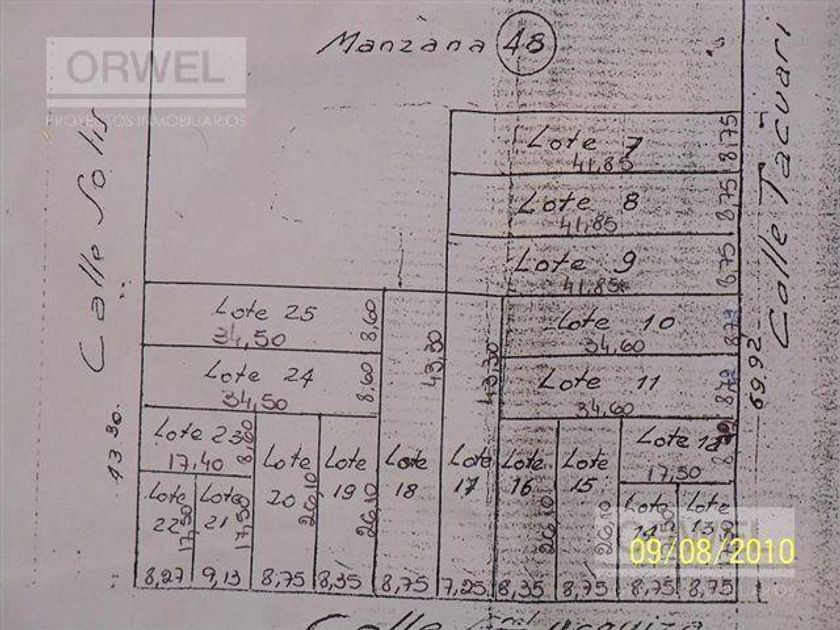 Manzana 48
ORWEL
PROYECTOS INMOBILIARIOS
Calle Solis
43 30
Calle Tacuari
69,92
Lote 7
41,85
8,75
Lote 8
41,85
8,75
Lote 9
41,85
8,75
Lote 25
34,50
8,60
Lote 10
34,60
8,79
Lote 24
34,50
8,60
Lote 11
34,60
8,79
43,30
43,30
Lote 23
17,40
8,60
Lote 20
26,10
Lote 19
26,10
Lote 18
Lote 17
Lote 16
26,10
Lote 15
26,10
Lote 12
17,50
Lote 22
17,50
Lote 21
17,50
Lote 14
Lote 13
8,27
9,13
8,75
8,35
8,75
7,25
8,35
8,75
8,75
8,75
09/08/2010
Calle Gral Urquiza